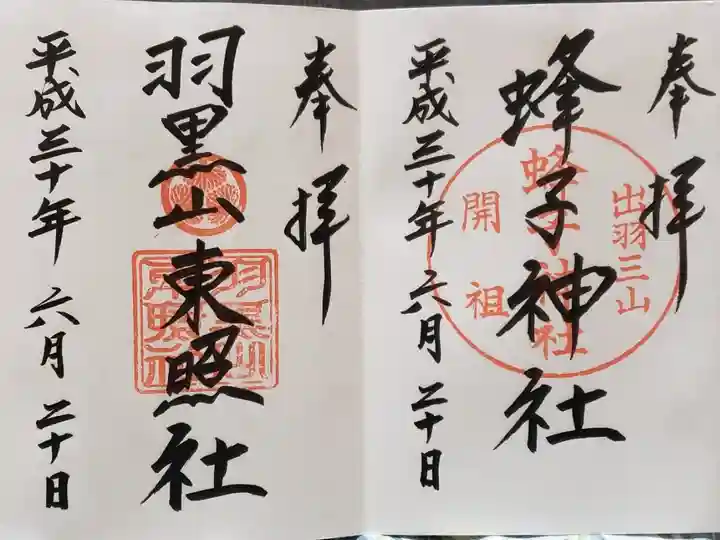 奉拝
出羽三山
蜂子神社
蜂子神社
開祖
平成三十年 六月 二十日
奉拝
羽黒山東照社
羽黒山
東照社
平成三十年 六月 二十日